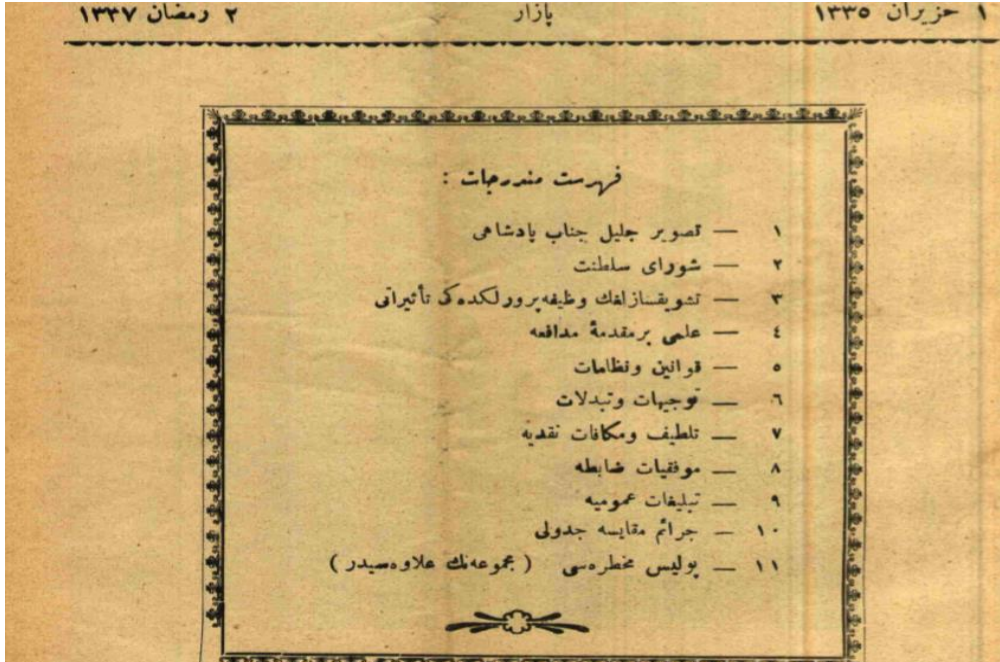 ١ حزیران ١٣٣٥ پازار ٢ رمضان ١٣٣٧
فهرست مندرجات :
١ — تصویر جلیل جناب پادشاهی
٢ — شورای سلطنت
٣ — تشویقسازلغك وظیفه‌پرورلكده‌كی تأثیراتی
٤ — علمی برمقدمهٔ مدافعه
٥ — قوانین ونظامات
٦ — توجیهات وتبدلات
٧ — تلطیف ومكافات نقدیه
٨ — موفقیات ضابطه
٩ — تبلیغات عمومیه
١٠ — جرائم مقایسه جدولی
١١ — پولیس مخطره‌سی ( مجموعه‌نك علاوه‌سیدر )